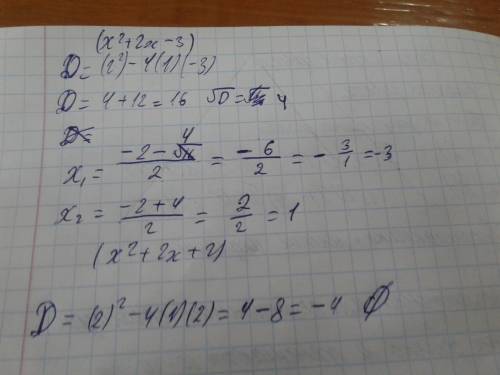 (x²+2x-3)
D=(2²)-4(1)(-3)
D=4+12=16 √D=4
D=
x₁ = (-2-4)/2 = -6/2 = -3/1 =-3
x₂ = (-2+4)/2 = 2/2 = 1
(x²+2x+2)
D=(2)²-4(1)(2)=4-8=-4 Ø